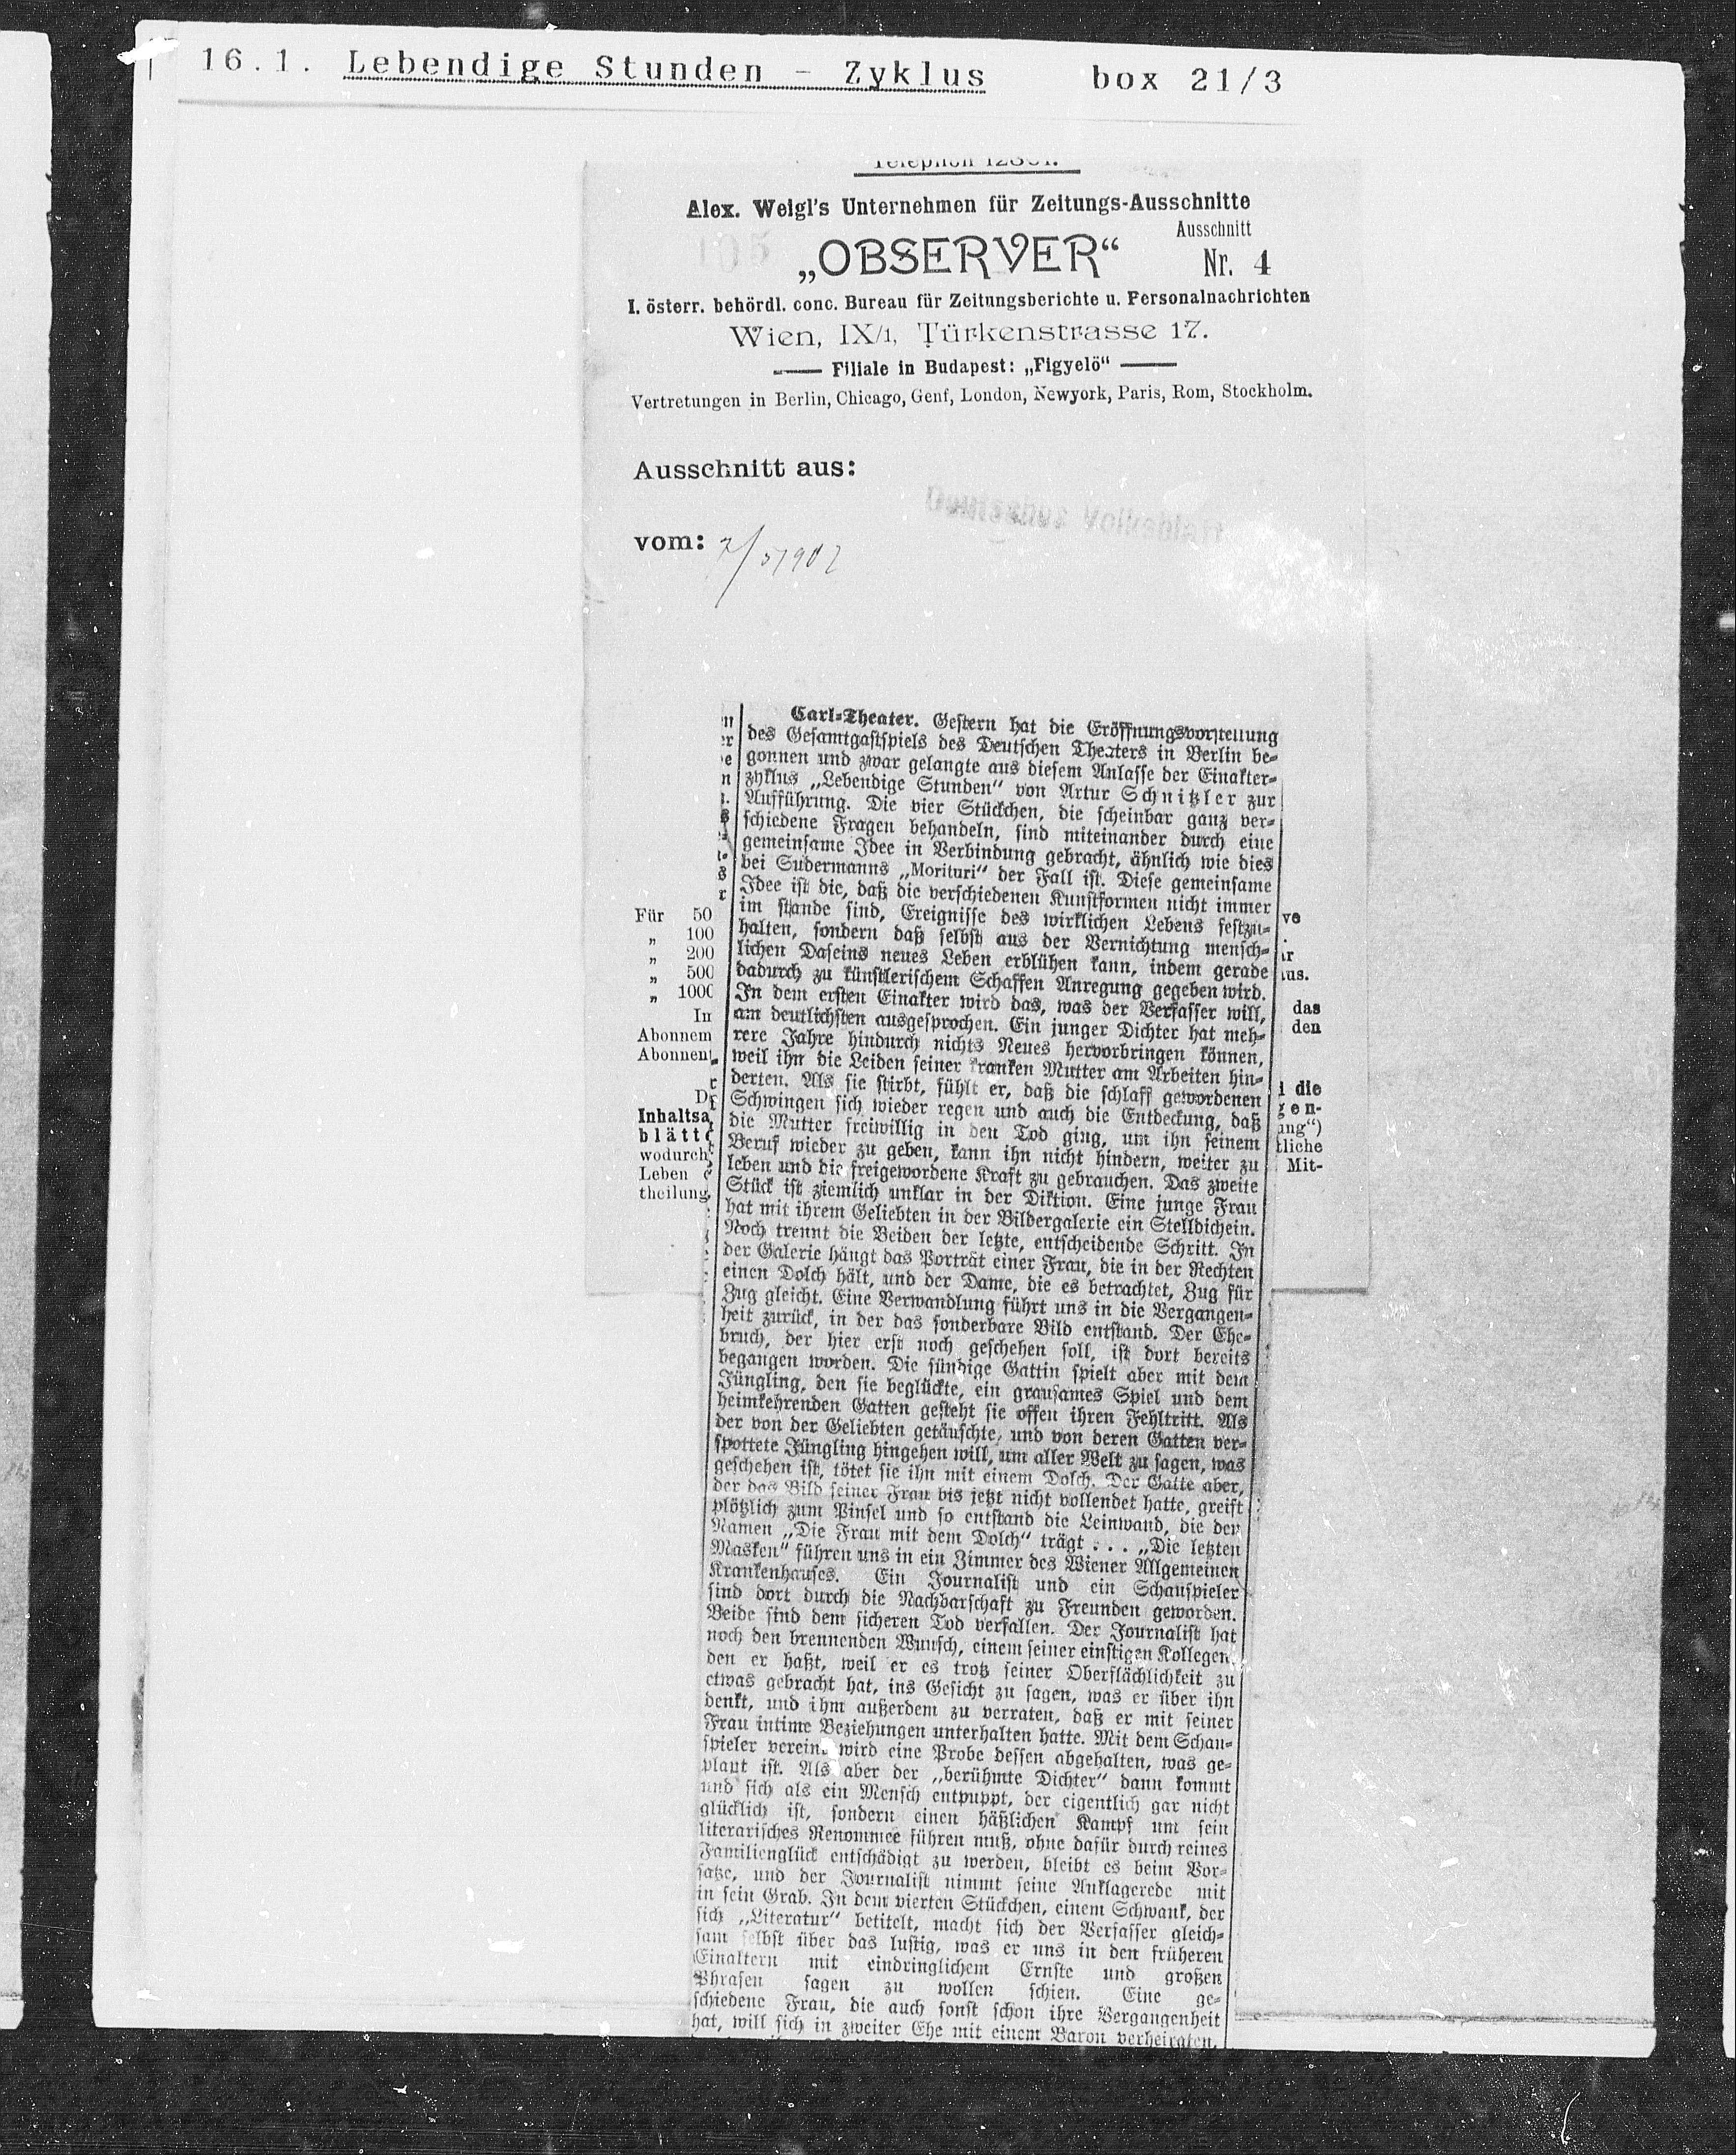 16.1. Lebendige Stunden - Zyklus box 21/3
Alex. Weigl's Unternehmen für Zeitungs-Ausschnitte
Ausschnitt
105
„OBSERVER“ Nr. 4
I. österr. behördl. conc. Bureau für Zeitungsberichte u. Personalnachrichten
Wien, IX/1, Türkenstrasse 17.
Filiale in Budapest: „Figyelö“
Vertretungen in Berlin, Chicago, Genf, London, Newyork, Paris, Rom, Stockholm.
Ausschnitt aus:
Deutsches Volksblatt
vom: 7/5 1902
Carl-Theater. Gestern hat die Eröffnungsvorstellung
des Gesamtgastspiels des Deutschen Theaters in Berlin be-
gonnen und zwar gelangte aus diesem Anlasse der Einakter-
zyklus „Lebendige Stunden“ von Artur Schnitzler zur
Aufführung. Die vier Stückchen, die scheinbar ganz ver-
schiedene Fragen behandeln, sind miteinander durch eine
gemeinsame Idee in Verbindung gebracht, ähnlich wie dies
bei Sudermanns „Morituri“ der Fall ist. Diese gemeinsame
Idee ist die, daß die verschiedenen Kunstformen nicht immer
im stande sind, Ereignisse des wirklichen Lebens festzu-
halten, sondern daß selbst aus der Vernichtung mensch-
lichen Daseins neues Leben erblühen kann, indem gerade
dadurch zu künstlerischem Schaffen Anregung gegeben wird.
In dem ersten Einakter wird das, was der Verfasser will,
am deutlichsten ausgesprochen. Ein junger Dichter hat meh-
rere Jahre hindurch nichts Neues hervorbringen können,
weil ihn die Leiden seiner kranken Mutter am Arbeiten hin-
derten. Als sie stirbt, fühlt er, daß die schlaff gewordenen
Schwingen sich wieder regen und auch die Entdeckung, daß
die Mutter freiwillig in den Tod ging, um ihn seinem
Beruf wieder zu geben, kann ihn nicht hindern, weiter zu
leben und die freigewordene Kraft zu gebrauchen. Das zweite
Stück ist ziemlich unklar in der Diktion. Eine junge Frau
hat mit ihrem Geliebten in der Bildergalerie ein Stelldichein.
Noch trennt die Beiden der letzte, entscheidende Schritt. In
der Galerie hängt das Porträt einer Frau, die in der Rechten
einen Dolch hält, und der Dame, die es betrachtet, Zug für
Zug gleicht. Eine Verwandlung führt uns in die Vergangen-
heit zurück, in der das sonderbare Bild entstand. Der Ehe-
bruch, der hier erst noch geschehen soll, ist dort bereits
begangen worden. Die sündige Gattin spielt aber mit dem
Jüngling, den sie beglückte, ein grausames Spiel und dem
heimkehrenden Gatten gesteht sie offen ihren Fehltritt. Als
der von der Geliebten getäuschte, und von deren Gatten ver-
spottete Jüngling hingehen will, um aller Welt zu sagen, was
geschehen ist, tötet sie ihn mit einem Dolch. Der Gatte aber,
der das Bild seiner Frau bis jetzt nicht vollendet hatte, greift
plötzlich zum Pinsel und so entstand die Leinwand, die den
Namen „Die Frau mit dem Dolch“ trägt . . . „Die letzten
Masken“ führen uns in ein Zimmer des Wiener Allgemeinen
Krankenhauses. Ein Journalist und ein Schauspieler
sind dort durch die Nachbarschaft zu Freunden geworden.
Beide sind dem sicheren Tod verfallen. Der Journalist hat
noch den brennenden Wunsch, einem seiner einstigen Kollegen,
den er haßt, weil er es trotz seiner Oberflächlichkeit zu
etwas gebracht hat, ins Gesicht zu sagen, was er über ihn
denkt, und ihm außerdem zu verraten, daß er mit seiner
Frau intime Beziehungen unterhalten hatte. Mit dem Schau-
spieler vereint wird eine Probe dessen abgehalten, was ge-
plant ist. Als aber der „berühmte Dichter“ dann kommt
und sich als ein Mensch entpuppt, der eigentlich gar nicht
glücklich ist, sondern einen häßlichen Kampf um sein
literarisches Renommee führen muß, ohne dafür durch reines
Familienglück entschädigt zu werden, bleibt es beim Vor-
satze, und der Journalist nimmt seine Anklagerede mit
in sein Grab. In dem vierten Stückchen, einem Schwank, der
sich „Literatur“ betitelt, macht sich der Verfasser gleich-
sam selbst über das lustig, was er uns in den früheren
Einaktern mit eindringlichem Ernste und großen
Phrasen sagen zu wollen schien. Eine ge-
schiedene Frau, die auch sonst schon ihre Vergangenheit
hat, will sich in zweiter Ehe mit einem Baron verheiraten,
Für 50
„ 100
„ 200
„ 500
„ 1000
In
Abonnem
Abonnent
D
Inhaltsa
blätt
wodurch
Leben
theilung
ve
ir
us.
das
den
die
gen-
ung“)
tliche
Mit-